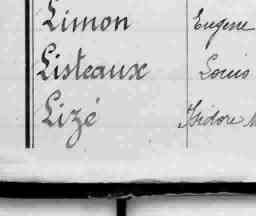 Limon Eugène
Listeaux Louis
Lizé Isidore